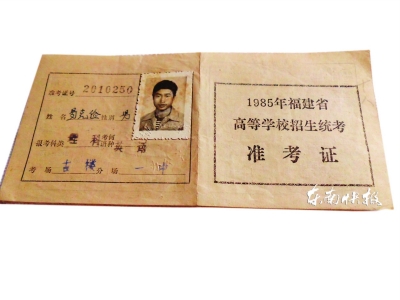 准考证号 2010250
姓名 克俭 性别 男
报考科类 理科 考何语种 英语
考场 古楼 分场 一中
1985年福建省
高等学校招生统考
准考证
东南快报